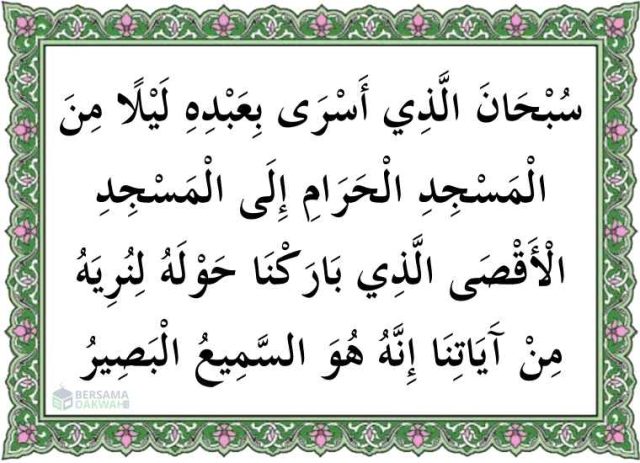 سُبْحَانَ الَّذِي أَسْرَى بِعَبْدِهِ لَيْلًا مِنَ
الْمَسْجِدِ الْحَرَامِ إِلَى الْمَسْجِدِ
الْأَقْصَى الَّذِي بَارَكْنَا حَوْلَهُ لِنُرِيَهُ
مِنْ آَيَاتِنَا إِنَّهُ هُوَ السَّمِيعُ الْبَصِيرُ
BERSAMA
DAKWAH